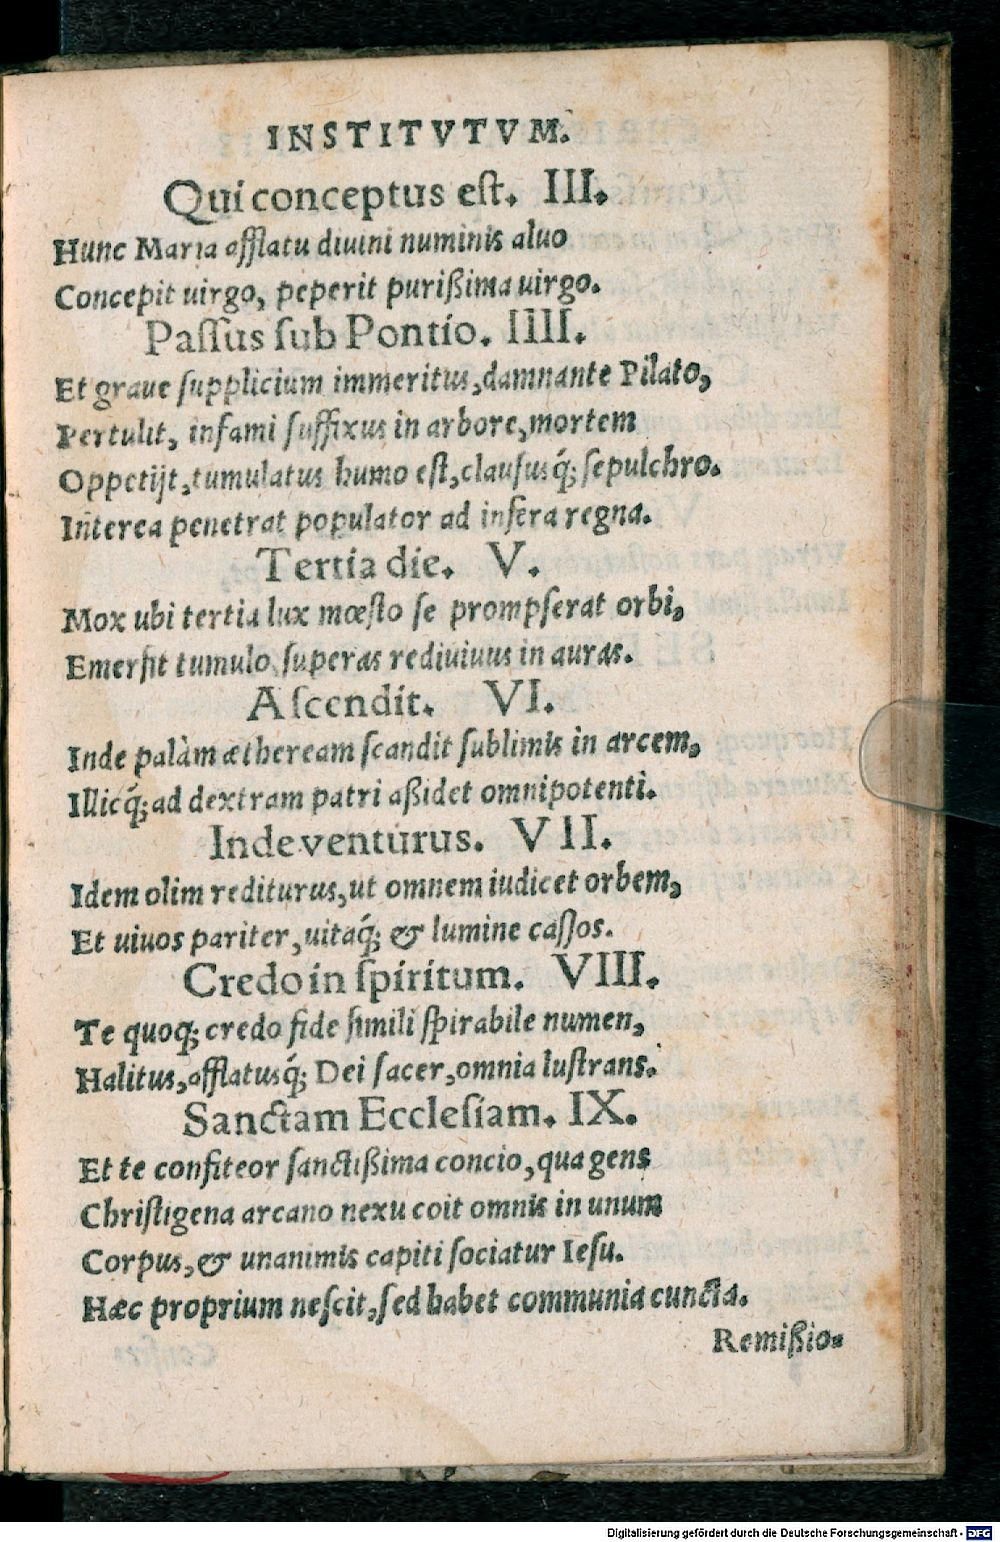 INSTITVTVM.
Qui conceptus eſt. III.
Hunc Maria afflatu diuini numinis aluo
Concepit uirgo, peperit purißima uirgo.
Paſſus ſub Pontio. IIII.
Et graue ſupplicium immeritus, damnante Pilato,
Pertulit, infami ſuffixus in arbore, mortem
Oppetijt, tumulatus humo eſt, clauſusq́; ſepulchro.
Interea penetrat populator ad infera regna.
Tertia die. V.
Mox ubi tertia lux mœſto ſe prompſerat orbi,
Emerſit tumulo, ſuperas rediuiuus in auras.
Aſcendit. VI.
Inde palàm ætheream ſcandit ſublimis in arcem,
Illicq́; ad dextram patri aßidet omnipotenti.
Inde venturus. VII.
Idem olim rediturus, ut omnem iudicet orbem,
Et uiuos pariter, uitaq́; & lumine caſſos.
Credo in ſpiritum. VIII.
Te quoq; credo fide ſimili ſpirabile numen,
Halitus, afflatusq́; Dei ſacer, omnia luſtrans.
Sanctam Eccleſiam. IX.
Et te confiteor ſanctißima concio, qua gens
Chriſtigena arcano nexu coit omnis in unum
Corpus, & unanimis capiti ſociatur Ieſu.
Hæc proprium neſcit, ſed habet communia cuncta.
Remißio-
Digitalisierung gefördert durch die Deutsche Forschungsgemeinschaft - DFG